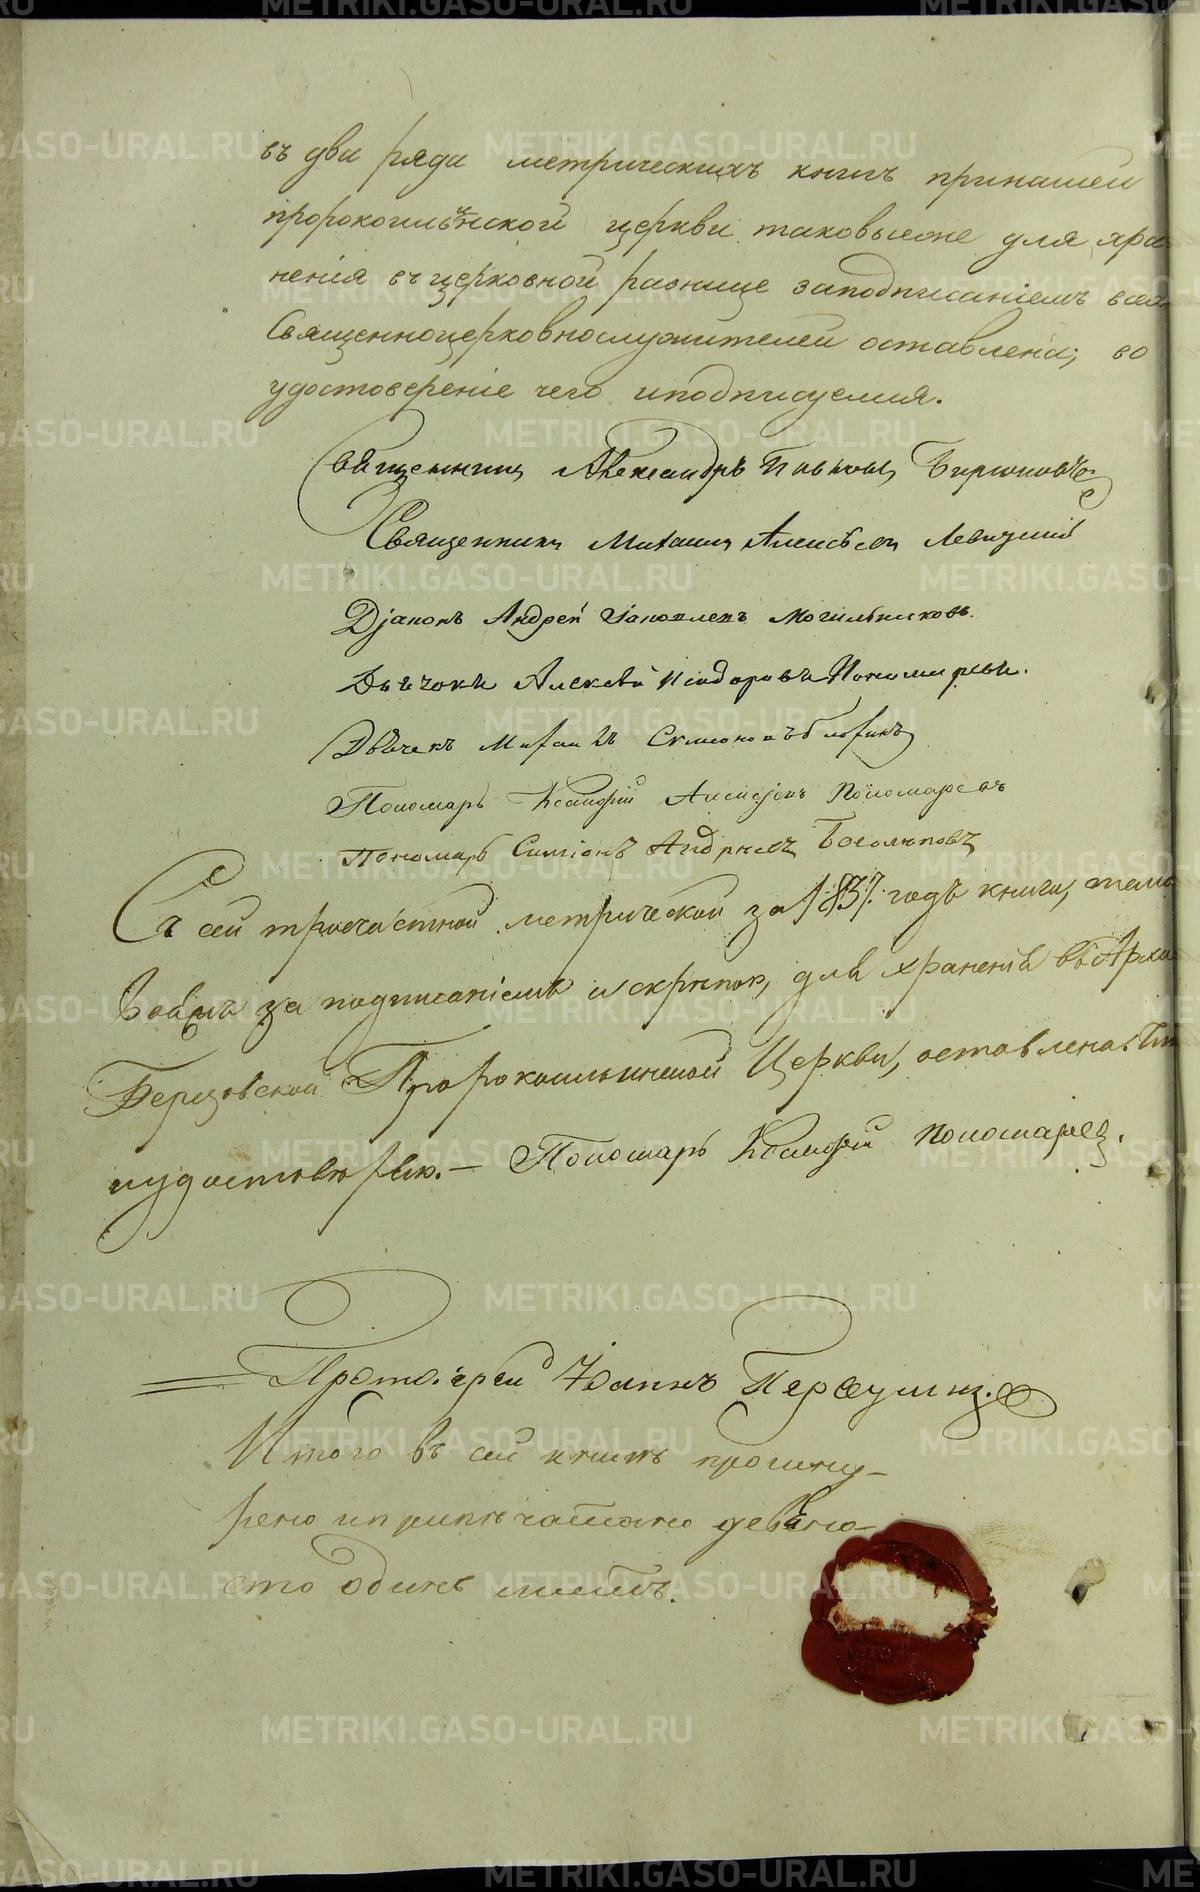 въ два ряда метрическихъ книгъ принашей
пророкоильинской церкви таковыеже для хра
ненія въ церковной разнице заподписаніемъ всех
Священноцерковнослужителей оставлена; во
удостовереніе чего иподписуемся.
Священникъ Александръ Павловъ Бирюковъ
Священникъ Михаилъ Алексѣевъ Левицкій
Діаконъ Андрей Яковлевъ Могильниковъ.
Дьячокъ Алексѣй Ѳеодоровъ Пономаревъ.
Дьячекъ Михаилъ Симеоновъ
Пономарь Ксенофонтъ Алексѣевъ Пономаревъ
Пономарь Симеонъ Андреевъ Боголюповъ
Съ сей троечастной метрической за 1837. годъ книги, тако
вой за подписаніемъ и скрѣпою, для храненія въ Архи
Березовской Пророкоильинской Церкви, оставлена.
иудостоверяю. — Пономарь Пономаревъ.
Протоіерей Іоаннъ Первушинъ.
Итого въ сей книгѣ прошну-
рено иприпечатано девяно-
сто одинъ листъ.
METRIKI.GASO-URAL.RU